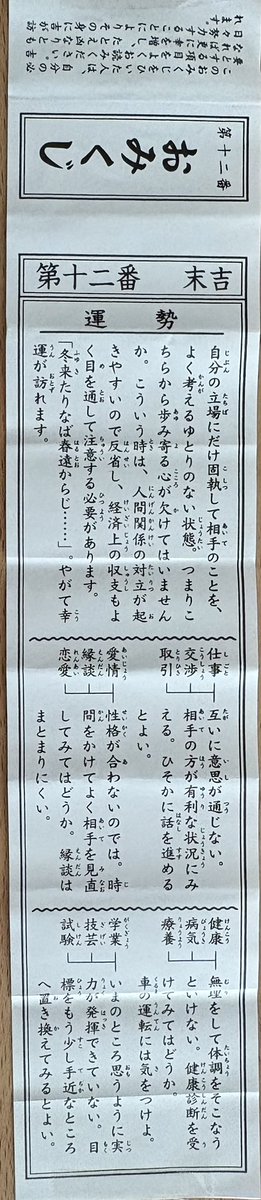 第十二番
おみくじ
第十二番 末吉
運勢
自分の立場にだけ固執して相手のことを、
よく考えるゆとりのない状態。つまりこ
ちらから歩み寄る心が欠けてはいません
か。こういう時は、人間関係の対立が起
きやすいので反省し、経済上の収支もよ
く目を通して注意する必要があります。
「冬来たりなば春遠からじ……」。やがて幸
運が訪れます。
仕事
交渉
取引
互いに意思が通じない。
相手の方が有利な状況にみ
える。ひそかに話を進める
とよい。
愛情
縁談
恋愛
性格が合わないのでは。時
間をかけてよく相手を見直
してみてはどうか。縁談は
まとまりにくい。
健康
病気
療養
無理をして体調をそこなう
といけない。健康診断を受
けてみてはどうか。
車の運転には気をつけよ。
学業
技芸
試験
いまのところ思うように実
力が発揮できていない。目
標をもう少し手近なところ
へ置き換えてみるとよい。